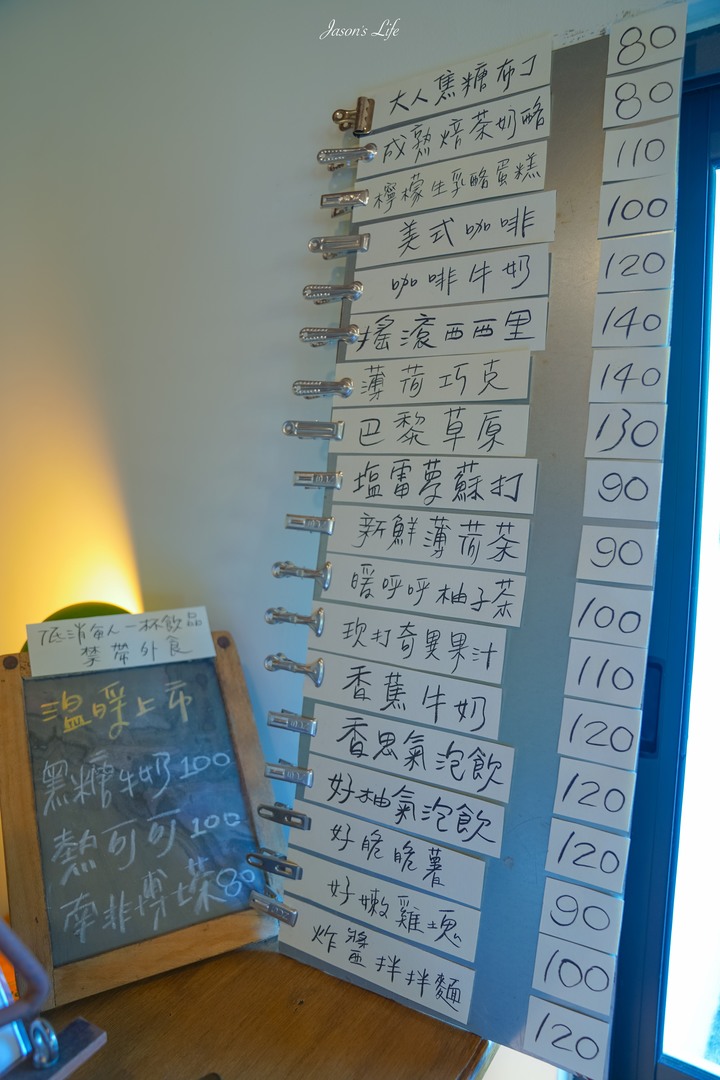 Jason's Life
大人焦糖布丁 80
成熟焙茶奶酪 80
檸檬生乳酪蛋糕 110
美式咖啡 100
咖啡牛奶 120
搖滾西西里 140
薄荷巧克 140
巴黎草原 130
塩雷夢蘇打 90
新鮮薄荷茶 90
暖呼呼柚子茶 100
現打奇異果汁 110
香蕉牛奶 120
香思氣泡飲 120
好柚氣泡飲 120
好脆脆薯 90
好嫩雞塊 100
炸醬拌拌麵 120
低消每人一杯飲品
禁帶外食
溫暖上市
黑糖牛奶100
熱可可100
南非博士茶80